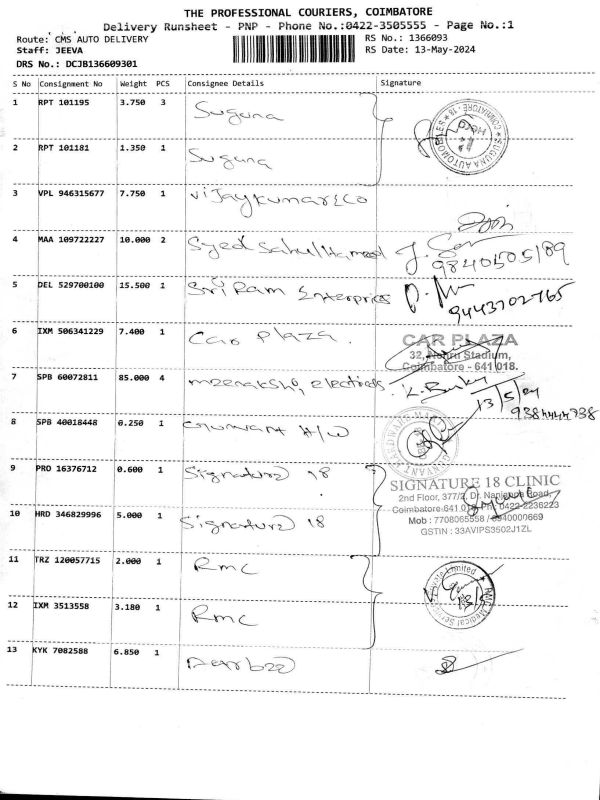 THE PROFESSIONAL COURIERS, COIMBATORE
Delivery Runsheet - PNP - Phone No.:0422-3505555 - Page No.:1
Route: CMS AUTO DELIVERY
RS No.: 1366093
Staff: JEEVA
RS Date: 13-May-2024
DRS No.: DCJB136609301
S No Consignment No Weight PCS Consignee Details Signature
1 RPT 101195 3.750 3 Suguna
SUGUNA AUTOMOBILES COIMBATORE - 18
2 RPT 101181 1.350 1 Suguna
3 VPL 946315677 7.750 1 Vijaykumar & Co
4 MAA 109722227 10.000 2 Syed Sahul Hameed
9840505189
5 DEL 529700100 15.500 1 Sri Ram Enterprises
9443702765
6 IXM 506341229 7.400 1 Car Plaza.
CAR PLAZA
32, Nehru Stadium,
Coimbatore - 641 018.
7 SPB 60072811 85.000 4 meenakshi, electricals.
13/5/24
8 SPB 40018448 0.250 1 Gurwant H/W
9 PRO 16376712 0.600 1 Signature 18
SIGNATURE 18 CLINIC
2nd Floor, 377/2, Dr. Nanjappa Road,
Coimbatore-641 018. Ph: 0422-2236223
Mob : 7708065558 / 8940000669
GSTIN : 33AVIPS3502J1ZL
10 HRD 346829996 5.000 1 Signature 18
11 TRZ 120057715 2.000 1 Rmc
RMC Medical Services Private Limited
12 IXM 3513558 3.180 1 Rmc
13 KYK 7082588 6.850 1